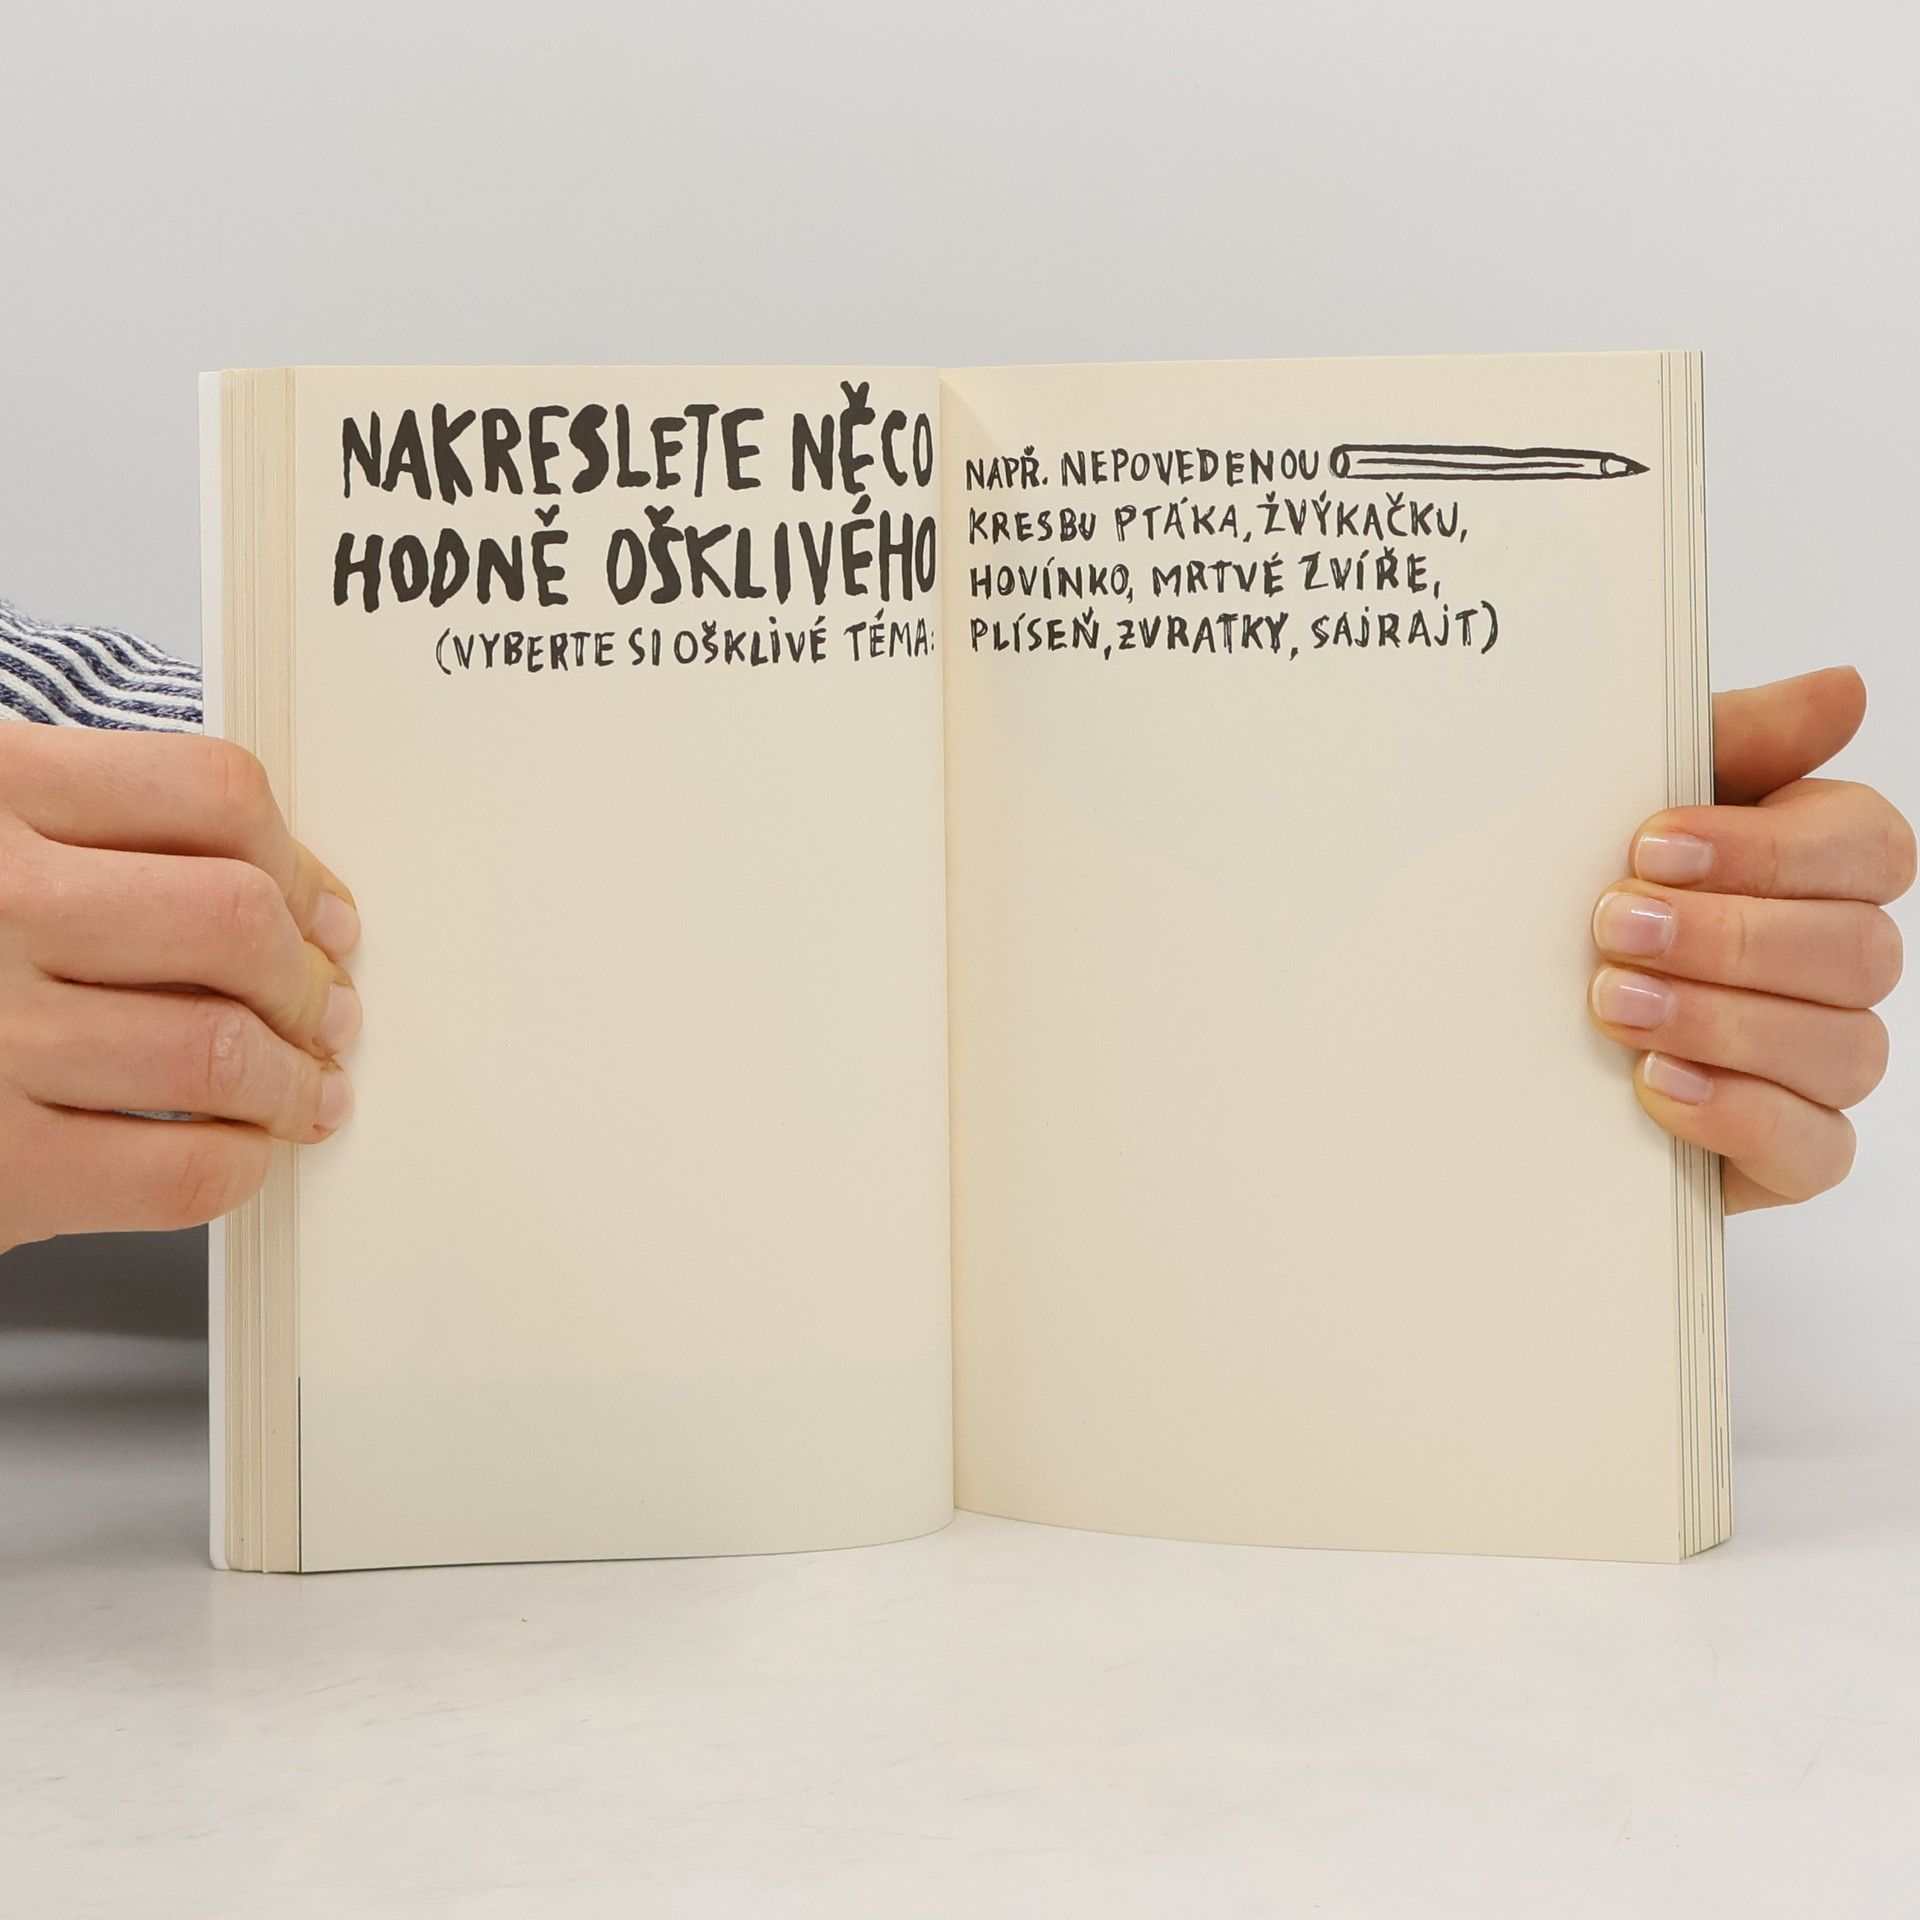 NAKRESLETE NĚCO
HODNĚ OŠKLIVÉHO
(VYBERTE SI OŠKLIVÉ TÉMA:
NAPŘ. NEPOVEDENOU
KRESBU PTÁKA, ŽVÝKAČKU,
HOVÍNKO, MRTVÉ ZVÍŘE,
PLÍSEŇ, ZVRATKY, SAJRAJT)